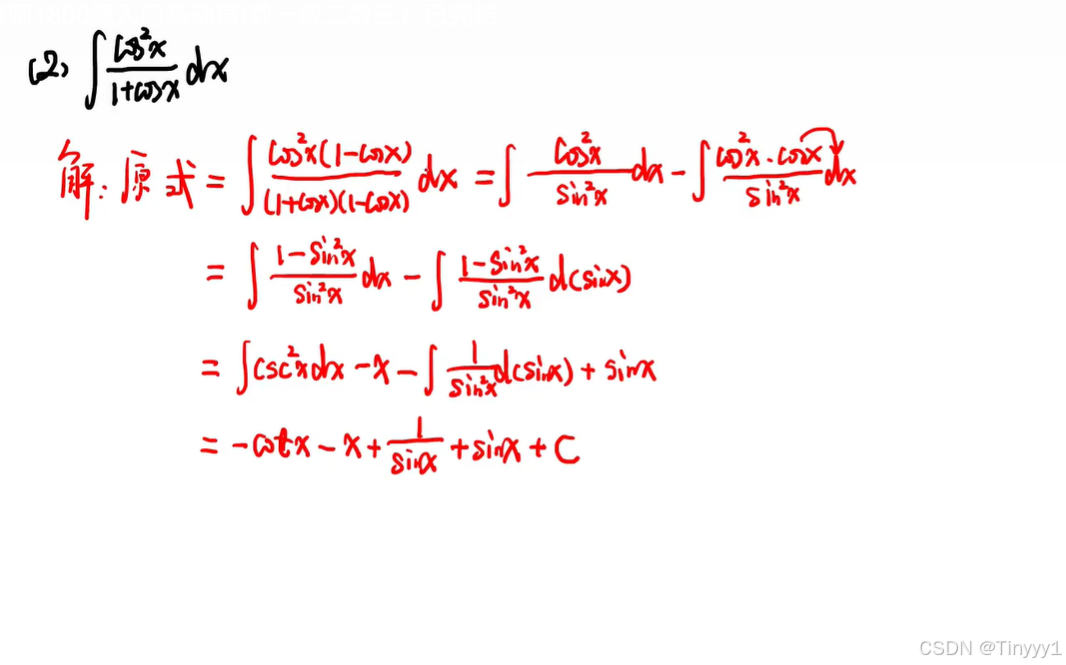 (2) ∫ cos²x/(1+cosx) dx
解:原式 = ∫ cos²x(1-cosx)/((1+cosx)(1-cosx)) dx = ∫ cos²x/sin²x dx - ∫ cos²x·cosx/sin²x dx
= ∫ (1-sin²x)/sin²x dx - ∫ (1-sin²x)/sin²x d(sinx)
= ∫csc²xdx - x - ∫ 1/sin²x d(sinx) + sinx
= -cotx - x + 1/sinx + sinx + C
CSDN @Tinyyy1